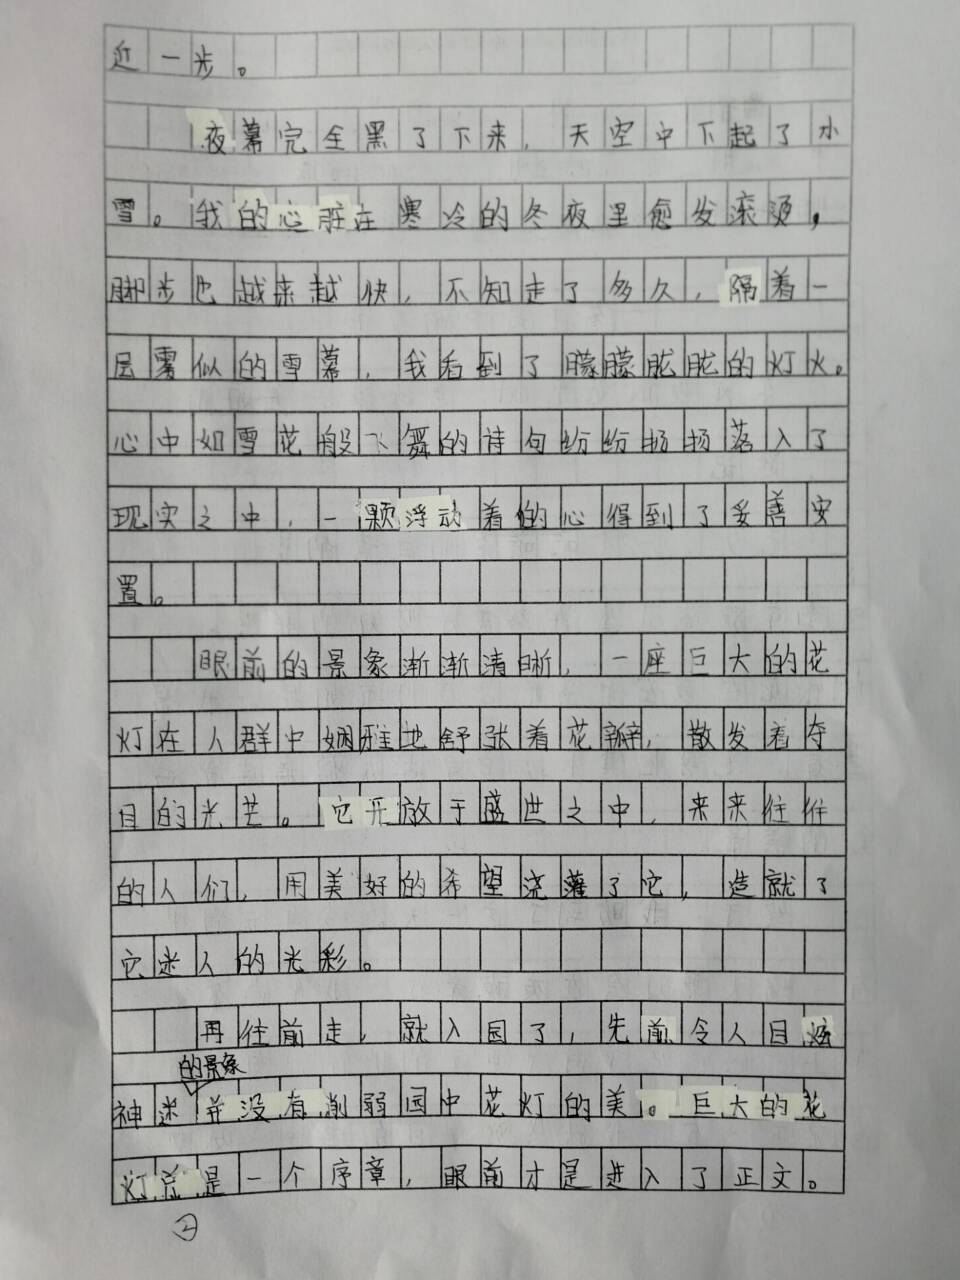 近一步。
夜幕完全黑了下来，天空中下起了小
雪。我的心脏在寒冷的冬夜里愈发滚烫，
脚步也越来越快，不知走了多久，隔着一
层雾似的雪幕，我看到了朦朦胧胧的灯火。
心中如雪花般飞舞的诗句纷纷扬扬落入了
现实之中，一颗浮动着的心得到了妥善安
置。
眼前的景象渐渐清晰，一座巨大的花
灯在人群中娴雅地舒张着花瓣，散发着夺
目的光芒。它开放于盛世之中，来来往往
的人们，用美好的希望浇灌了它，造就了
它迷人的光彩。
再往前走，就入园了，先前令人目眩
的景象
神迷并没有削弱园中花灯的美。巨大的花
灯总是一个序章，眼前才是进入了正文。
2